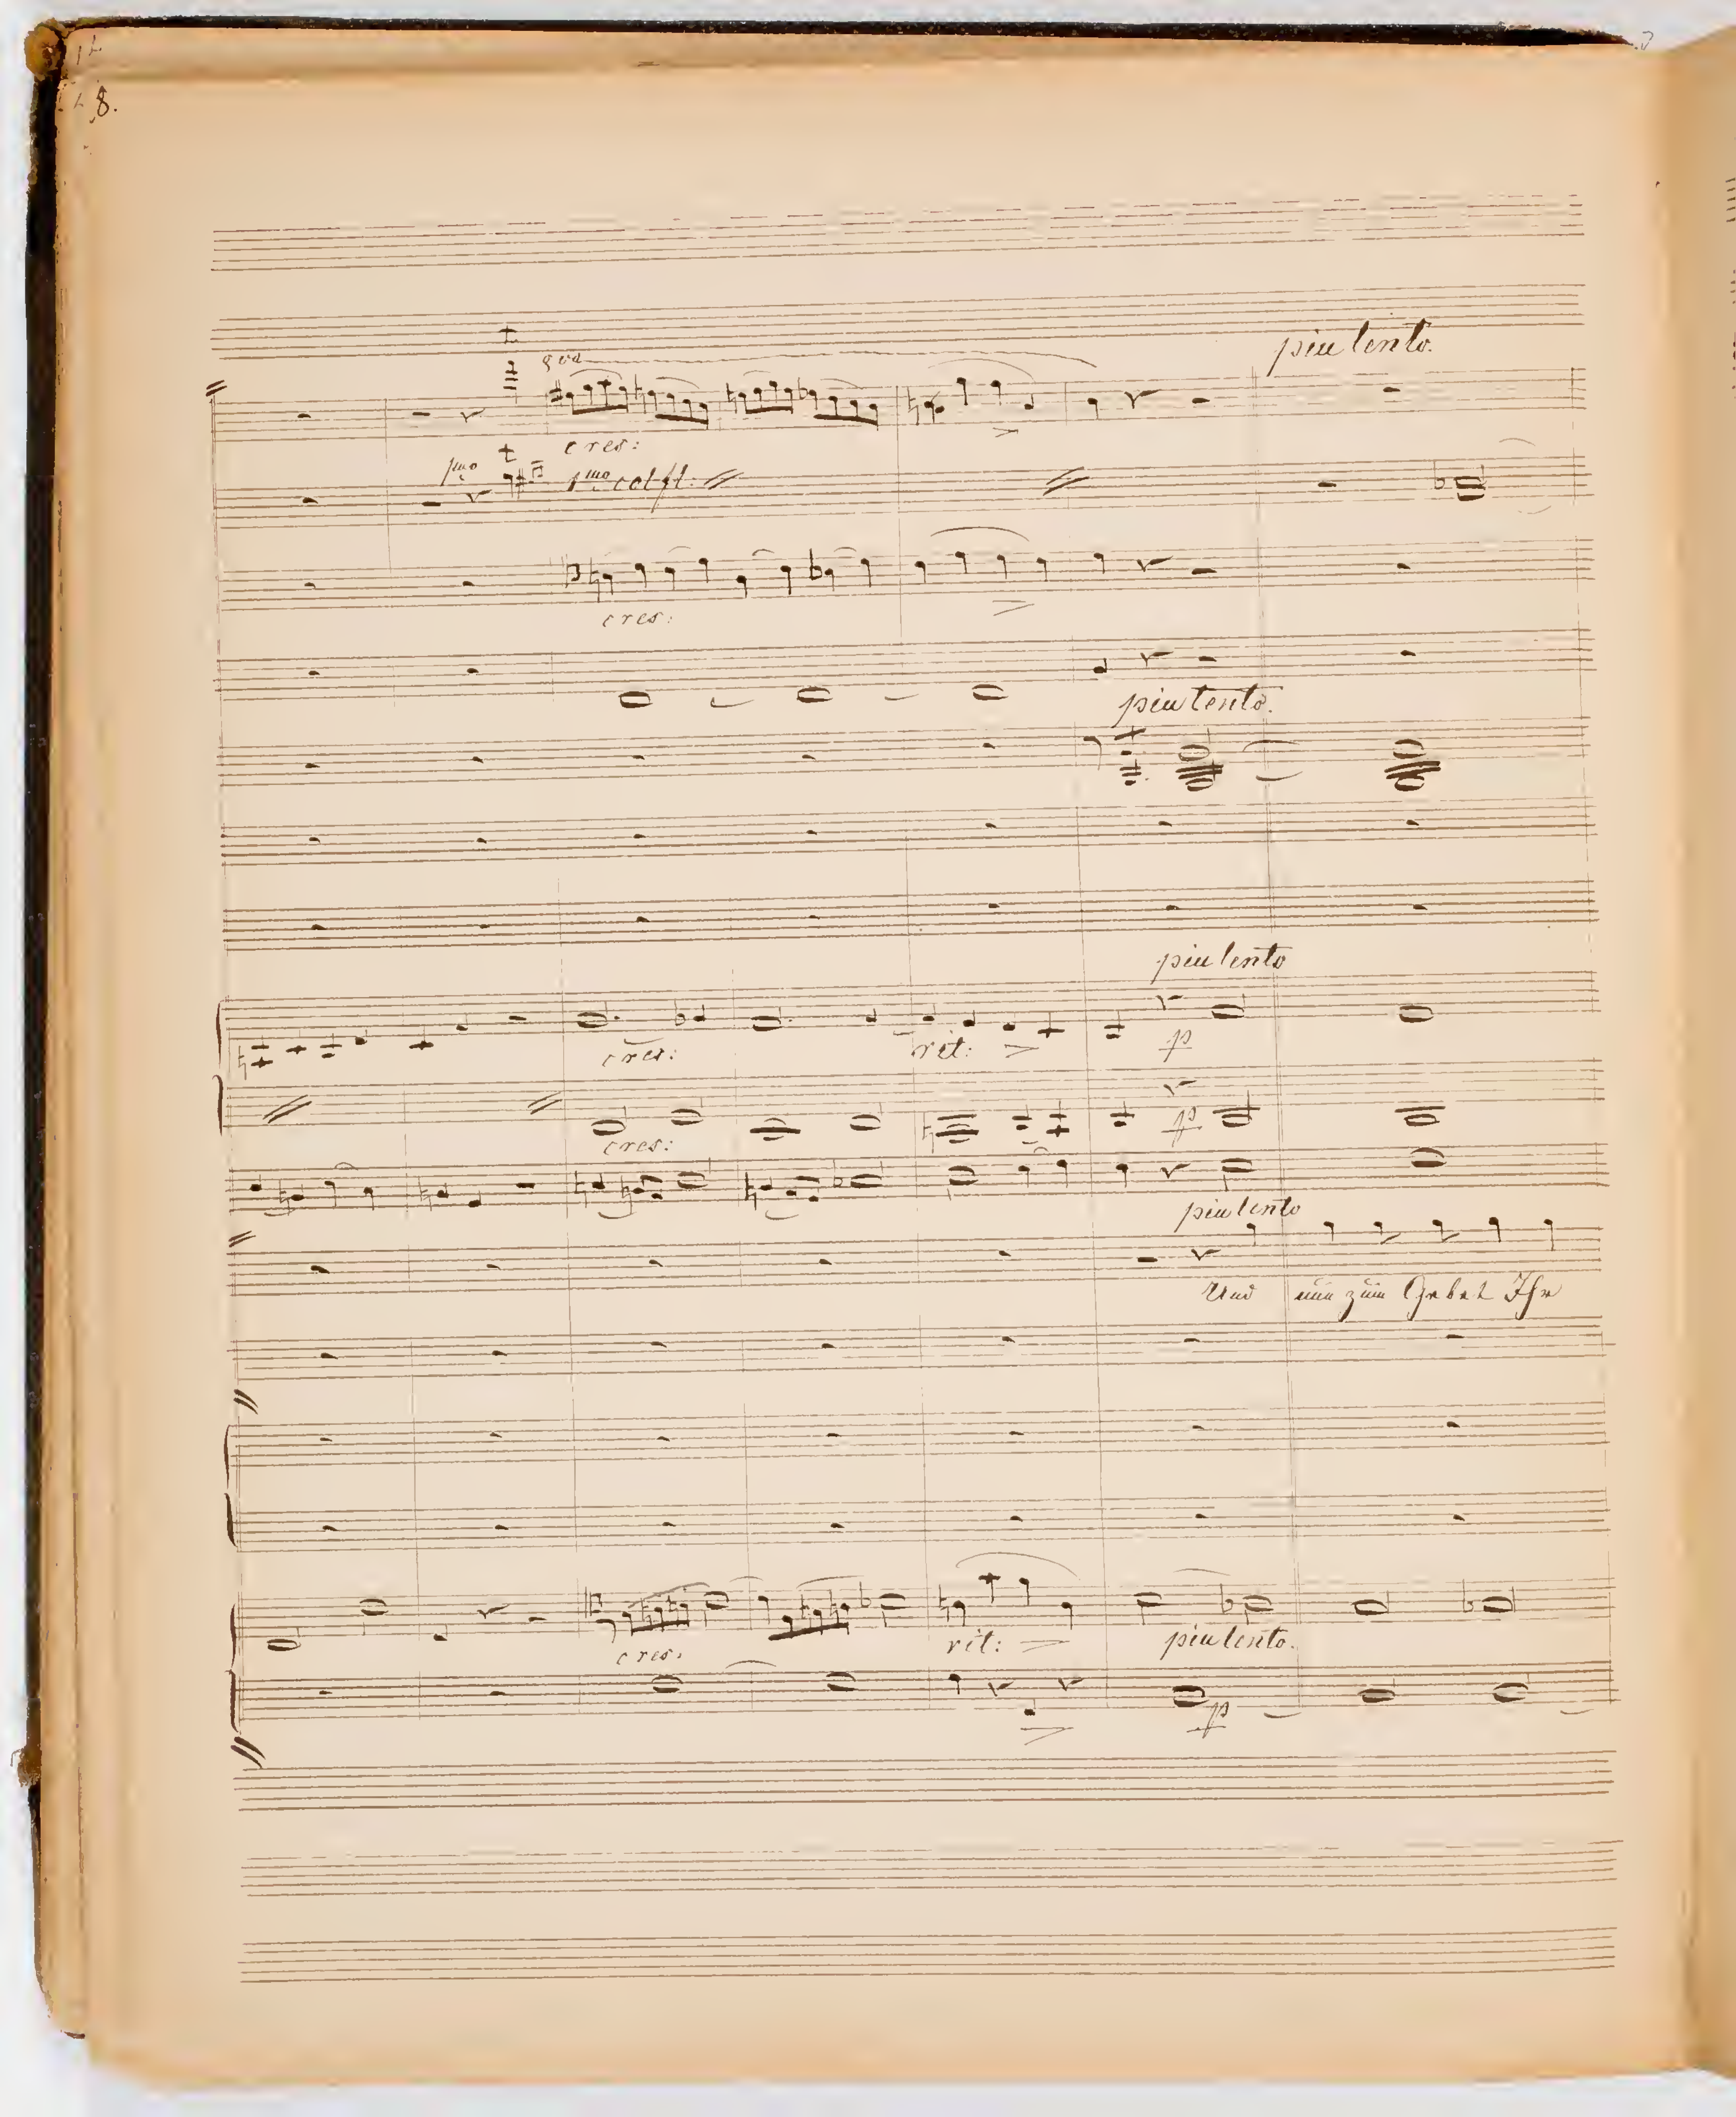 8.
piu lento.
8va
cres:
1mo
1mo col fl:
cres:
piu lento.
piu lento
cres:
rit:
p
p
cres:
piu lento
Und nun zum Gebet Ihr
cres.
rit:
piu lento.
p